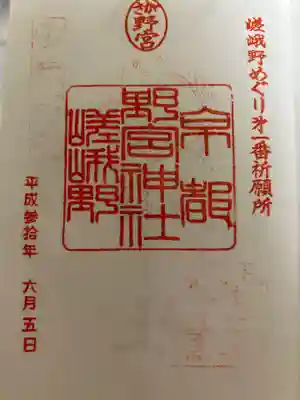 野宮
嵯峨野めぐり第一番祈願所
京都
野宮神社
嵯峨野
平成参拾年 六月五日